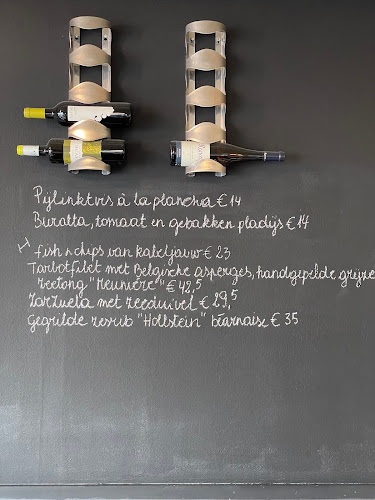 Pijlinktvis à la plancha € 14
Buratta, tomaat en gebakken pladijs € 14
fish n chips van kabeljauw € 23
Tarbotfilet met Belgische asperges, handgepelde grijze
Zeetong "Meunière" € 42,5
Zarzuela met zeeduivel € 29,5
Gegrilde zesrib "Hollstein" béarnaise € 35